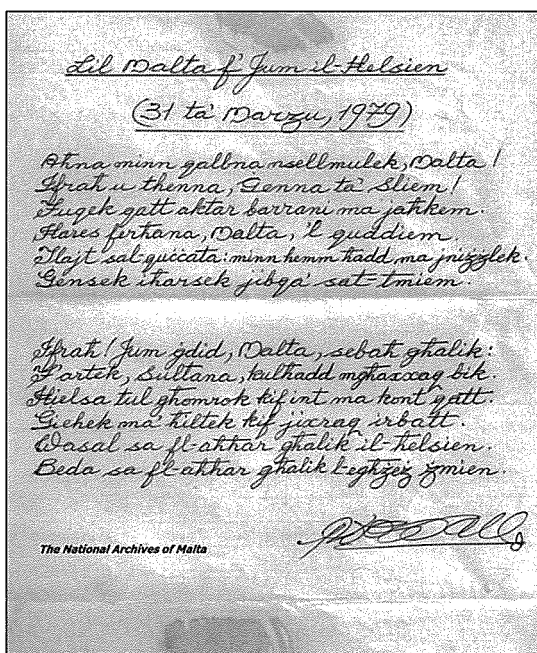 Lil Malta f' Jum il-Ħelsien
(31 ta' Marzu, 1979)
Aħna minn qalbna nsellmulek, Malta!
Ifraħ u thenna, Ġenna ta' Sliem!
Fuqek qatt aktar barrani ma jaħkem.
Ħares ferħana, Malta, 'l quddiem.
Tlajt sal-quċċata: minn hemm ħadd ma jniżżlek.
Ġensek iħarsek jibqa' sat-tmiem.
Ifraħ! Jum ġdid, Malta, sebaħ għalik:
F'artek, Sultana, kulħadd mgħaxxaq bik.
Ħielsa tul għomrok kif int ma kont qatt.
Ġieħek ma' ħiltek kif jixraq irbatt.
Wasal sa fl-aħħar għalik il-ħelsien.
Beda sa fl-aħħar għalik l-egħżeż żmien.
The National Archives of Malta